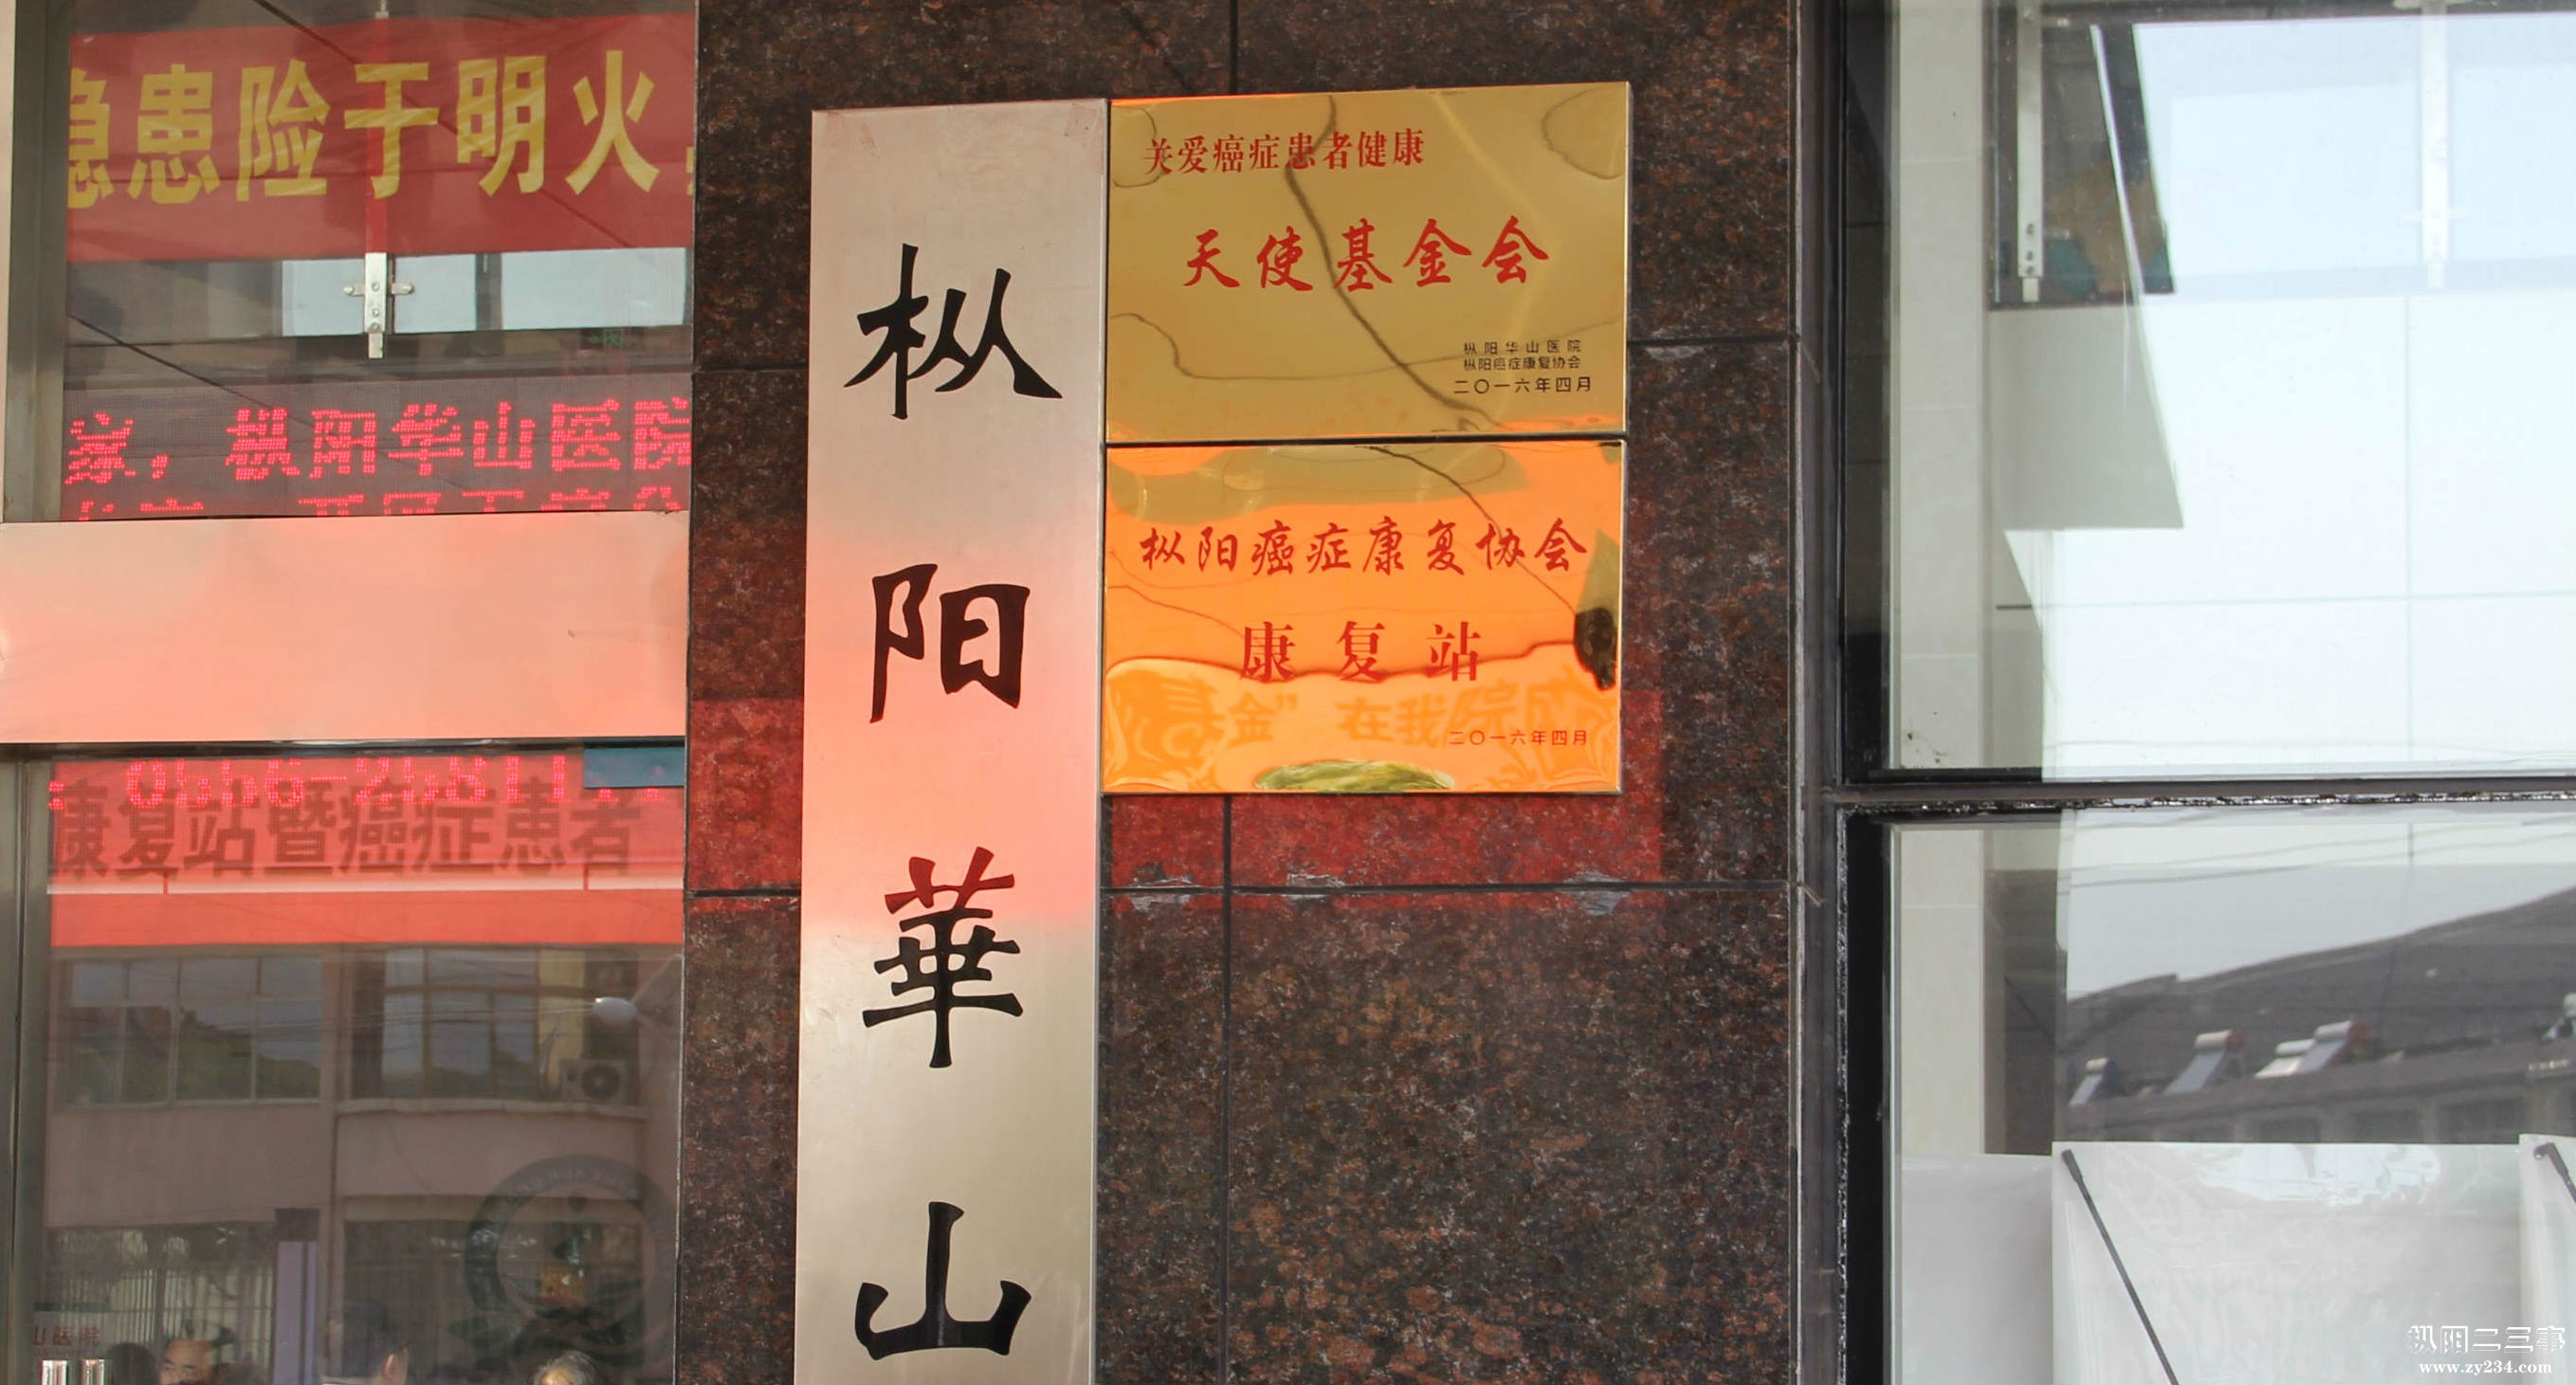 患险于明火
家，枞阳华山医院
康复站暨癌症患者
枞阳華山
关爱癌症患者健康
天使基金会
枞阳华山医院
枞阳癌症康复协会
二〇一六年四月
枞阳癌症康复协会
康复站
基金” 在我院
二〇一六年四月
山医院
枞阳二三事
www.zy234.com